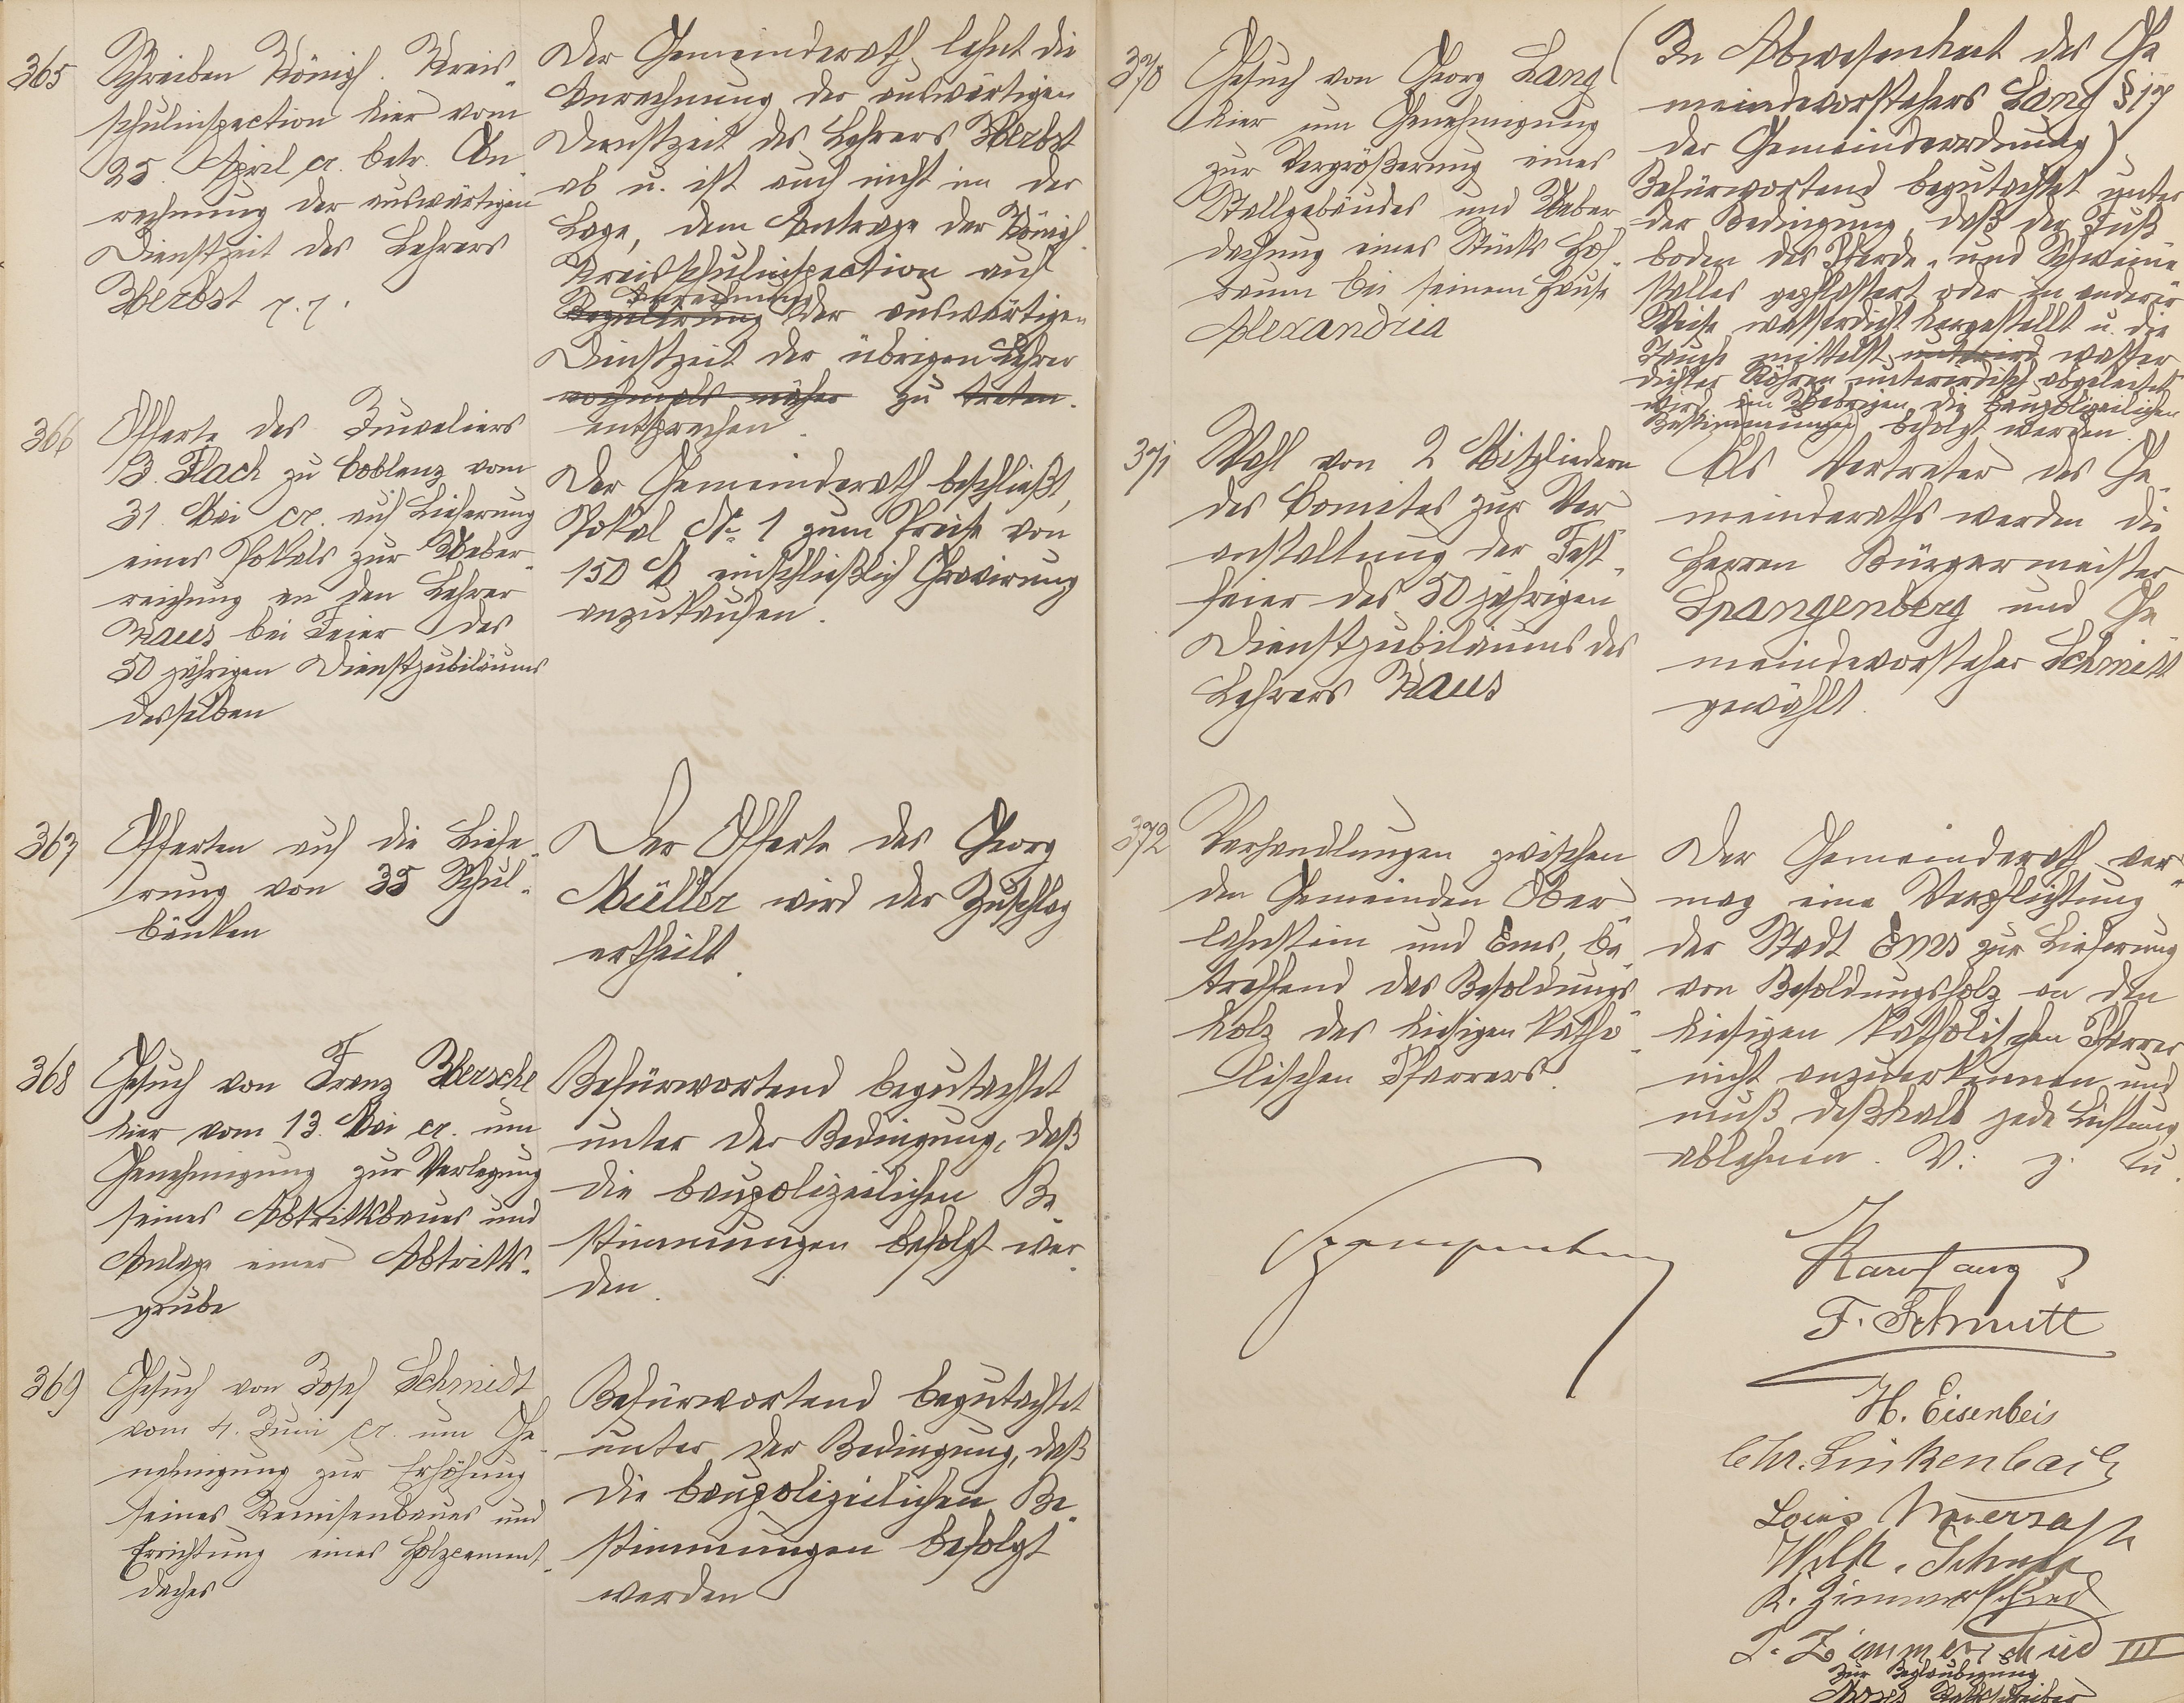 365
Schreiben Königl. Kreis-
schulinspection hier vom
25. April cr. betr. An-
rechnung der auswärtigen
Dienstzeit des Lehrers
Herbst p. p.
Der Gemeinderath lehnt die
Anrechnung der auswärtigen
Dienstzeit des Lehrers Herbst
ab u. ist auch nicht in der
Lage, dem Antrage der Königl.
Kreisschulinspection auf
Anrechnung
Regulirung der auswärtigen
Dienstzeit der übrigen Lehrer
nochmals näher zu treten.
entsprechen.
366
Offerte des Juweliers
B. Flach zu Coblenz vom
31. Mai cr. auf Lieferung
eines Pokals zur Ueber-
reichung an den Lehrer
Kaus bei Feier des
50 jährigen Dienstjubiläums
desselben
Der Gemeinderath beschließt,
Pokal No. 1 zum Preise von
150 M einschließlich Gravirung
anzukaufen.
367
Offerten auf die Liefe-
rung von 35 Schul-
bänken
Der Offerte des Georg
Müller wird der Zuschlag
ertheilt.
368
Gesuch von Franz Hersche
hier vom 13. Mai cr. um
Genehmigung zur Verlegung
seines Abtrittsbaues und
Anlage einer Abtritts-
grube
Befürwortend begutachtet
unter der Bedingung, daß
die baupolizeilichen Be-
stimmungen befolgt wer-
den.
369
Gesuch von Josef Schmidt
vom 4. Juni cr. um Ge-
nehmigung zur Erhöhung
seines Remisenbaues und
Errichtung eines Holzcement-
daches
Befürwortend begutachtet
unter der Bedingung, daß
die baupolizeilichen Be-
stimmungen befolgt
werden
370
Gesuch von Georg Lang
hier um Genehmigung
zur Vergrößerung eines
Stallgebäudes und Ueber-
dachung eines Stücks Hof-
raum bei seinem Hause
Alexandria
(In Abwesenheit des Ge-
meindevorstehers Lang § 17
der Gemeindeordnung)
Befürwortend begutachtet unter
der Bedingung, daß der Fuß-
boden des Pferde- und Schweine-
stalles gepflastert oder in anderer
Weise wasserdicht hergestellt u. die
Jauche mittelst unterird wasser-
dichter Röhren unterirdisch abgeleitet
wird, im Uebrigen die baupolizeilichen
Bestimmungen befolgt werden.
371
Wahl von 2 Mitgliedern
des Comites zur Ver-
anstaltung der Fest-
feier des 50 jährigen
Dienstjubiläums des
Lehrers Kaus
Als Vertreter des Ge-
meinderaths werden die
Herren Bürgermeister
Spangenberg und Ge-
meindevorsteher Schmitt
gewählt.
372
Verhandlungen zwischen
den Gemeinden Ober-
lahnstein und Ems, be-
treffend das Besoldungs-
holz des hiesigen katho-
lischen Pfarrers.
Der Gemeinderath ver-
mag eine Verpflichtung
der Stadt Ems zur Lieferung
von Besoldungsholz an den
hiesigen katholischen Pfarrer
nicht anzuerkennen und
muß deßhalb jede Leistung
ablehnen. V. g. u.
Spangenberg
Karl Lang
F. Schmitt
H. Eisenbeis
Chr. Linkenbach
Louis
Wilh.
K. Zimmerschied
P. Zimmerschied III
Zur Beglaubigung